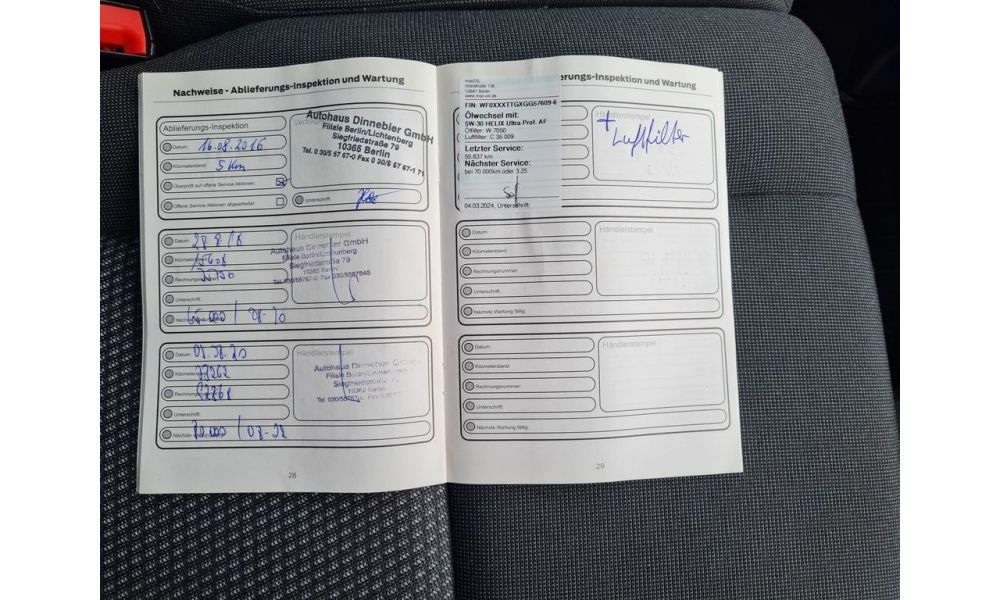 Nachweise - Ablieferungs-Inspektion und Wartung
Ablieferungs-Inspektion
Datum: 16.08.2016
Kilometerstand: 5 Km
Überprüft auf offene Service Aktionen:
Offene Service Aktionen abgearbeitet:
Autohaus Dinnebier GmbH
Filiale Berlin/Lichtenberg
Siegfriedstraße 79
10365 Berlin
Tel. 0 30/5 57 67-0 Fax 0 30/5 57 67-1 71
Unterschrift:
Datum: 28.8.18
Kilometerstand:
Rechnungsnummer:
Unterschrift:
Händlerstempel
Autohaus Dinnebier GmbH
Filiale Berlin/Lichtenberg
Siegfriedstraße 79
10365 Berlin
030/55767-0 Fax 030/5597845
/ 08-20
Datum: 08.20
Kilometerstand:
Rechnungsnummer:
Unterschrift:
Nächste
/ 08-22
Händlerstempel
Autohaus Dinnebier GmbH
Filiale Berlin/Lichtenberg
Siegfriedstraße 79
10365 Berlin
28
erungs-Inspektion und Wartung
12681 Berlin
FIN: WF0XXXTTGXGG57609-6
Ölwechsel mit:
5W-30 HELIX Ultra Prof. AF
Ölfilter: W 7050
Luftfilter: C 35 009
Letzter Service:
55.837 km
Nächster Service:
bei 70.000km oder 3.25
04.03.2024, Unterschrift:
+ Luftfilter
Datum:
Kilometerstand:
Rechnungsnummer:
Unterschrift:
Nächste Wartung fällig:
Händlerstempel
Datum:
Kilometerstand:
Rechnungsnummer:
Unterschrift:
Nächste Wartung fällig:
Händlerstempel
29